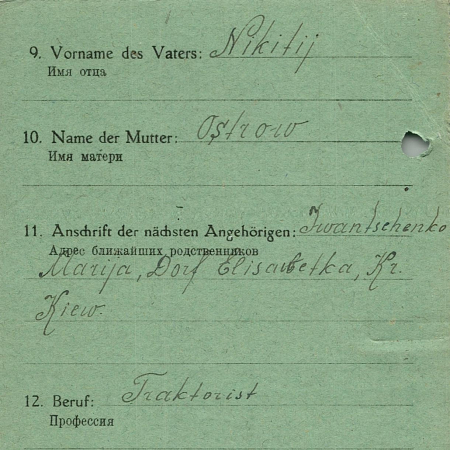 9. Vorname des Vaters: Nikitij
Имя отца
10. Name der Mutter: Ostrow
Имя матери
11. Anschrift der nächsten Angehörigen: Iwantschenko
Адрес ближайших родственников
Marija, Dorf Elisawetka, Kr.
Kiew.
12. Beruf: Traktorist
Профессия